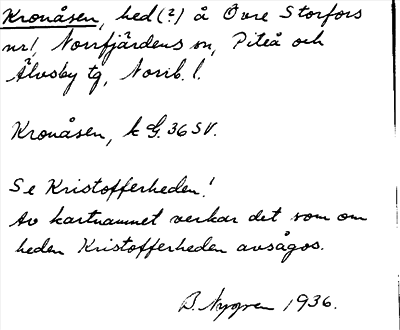 Kronåsen, hed(?) å Övre Storfors
nr 1, Norrfjärdens sn, Piteå och
Älvsby tg, Norrb. l.
Kronåsen, k G. 36 SV.
Se Kristofferheden!
Av kartnamnet verkar det som om
heden Kristofferheden avsågos.
B. Nygren 1936.